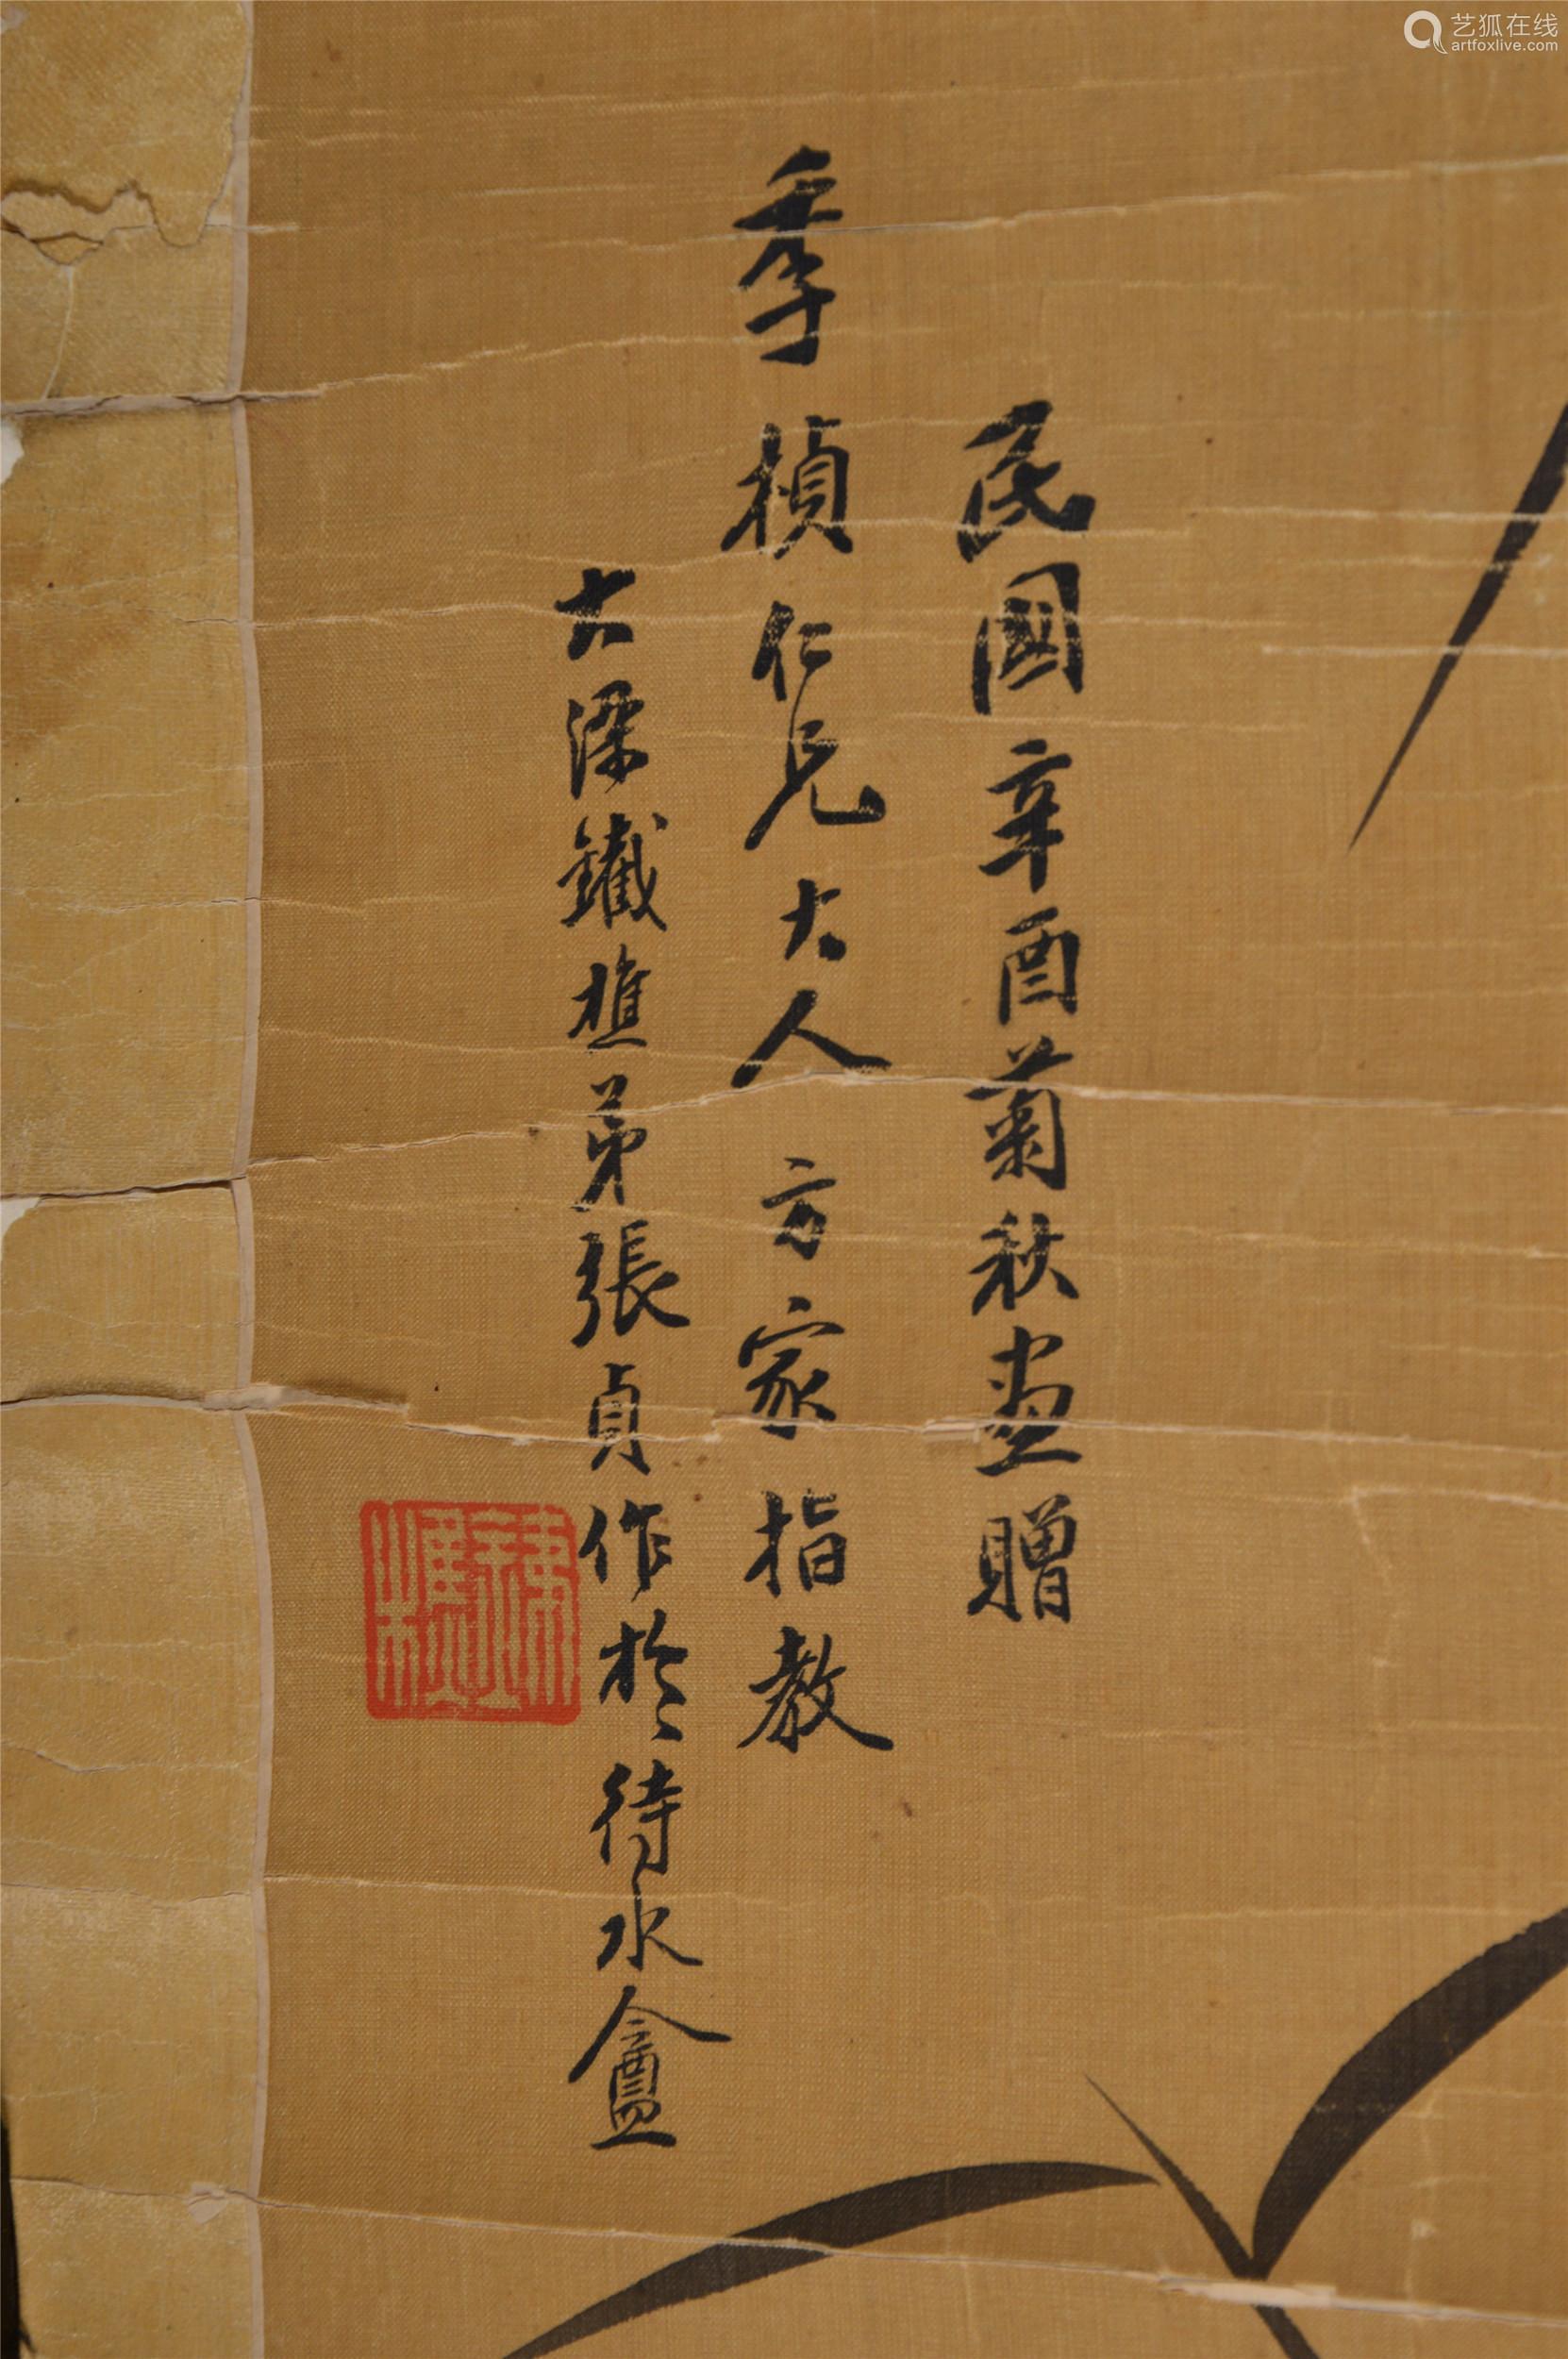 民國辛酉菊秋畫贈
季楨仁兄大人方家指教
大梁鐵樵弟張貞作於待水盦
艺狐在线
artfoxlive.com